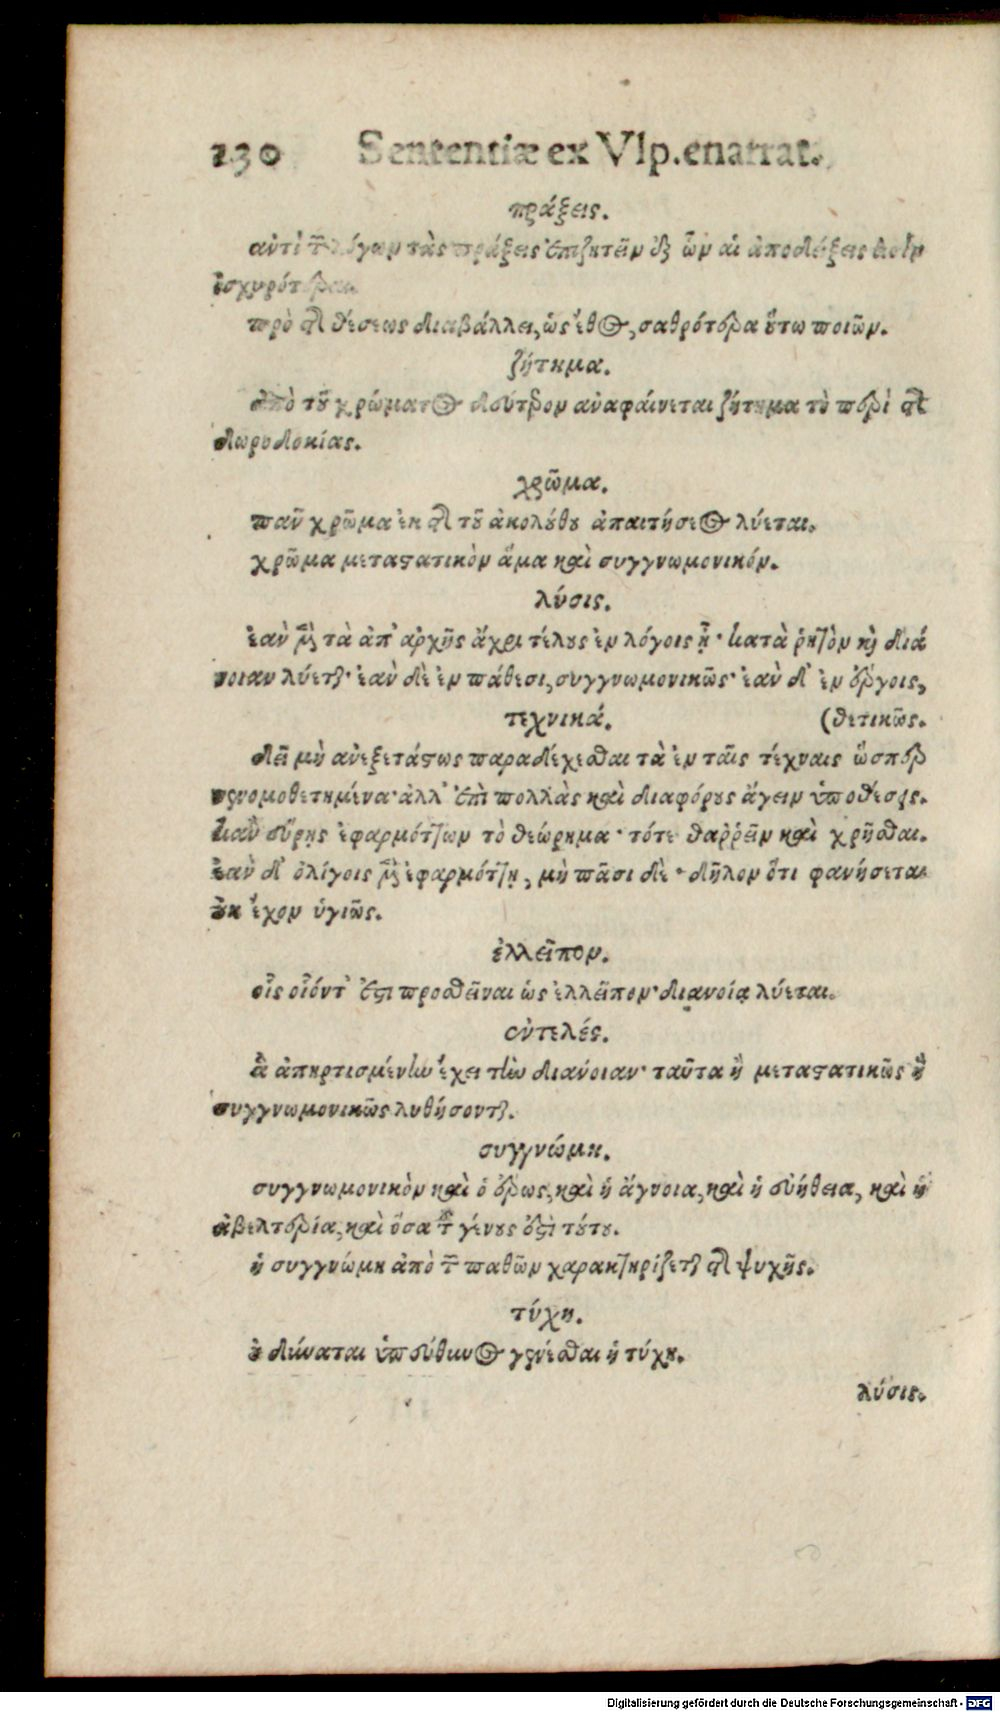 130 Sententiæ ex Vlp. enarrat.
πράξεις.
αὐτὶ τῶν λόγων τὰς πράξεις ἐπιζητεῖν ἐξ ὧν αἱ ἀποδείξεις εἰσὶν
ἰσχυρότεραι.
πρὸ τῆς θέσεως διαβάλλει, ὡς ἔθος, σαθρότερα οὕτω ποιῶν.
ζήτημα.
ἀπὸ τοῦ χρώματος δεύτερον ἀναφαίνεται ζήτημα τὸ περὶ τῆς
δωροδοκίας.
χρῶμα.
πᾶν χρῶμα ἐκ τῆς τοῦ ἀκολούθου ἀπαιτήσεως λύεται.
χρῶμα μεταστατικὸν ἅμα καὶ συγγνωμονικόν.
λύσις.
ἐὰν μὲν τὰ ἀπ' ἀρχῆς ἄχρι τέλους ἐν λόγοις ᾖ· κατὰ ῥητὸν καὶ διά
νοιαν λύεται· ἐὰν δὲ ἐν πάθεσι, συγγνωμονικῶς· ἐὰν δ' ἐν ἔργοις,
τεχνικά. (θετικῶς.
δεῖ μὴ ἀνεξετάστως παραδέχεσθαι τὰ ἐν ταῖς τέχναις ὥσπερ
νενομοθετημένα· ἀλλ' ἐπὶ πολλὰς καὶ διαφόρους ἄγειν ὑποθέσεις.
κἂν εὕρῃς ἐφαρμόττων τὸ θεώρημα· τότε θαῤῥεῖν καὶ χρῆσθαι.
ἐὰν δ' ὀλίγοις μὲν ἐφαρμόττῃ, μὴ πᾶσι δὲ· δῆλον ὅτι φανήσεται
οὐκ ἔχον ὑγιῶς.
ἐλλεῖπον.
οἷς οἷόντ' ἔστι προσθεῖναι ὡς ἐλλεῖπον· διανοίᾳ λύεται.
ἐντελές.
ἃ ἀπηρτισμένην ἔχει τὴν διάνοιαν· ταῦτα ἢ μεταστατικῶς ἢ
συγγνωμονικῶς λυθήσονται.
συγγνώμη.
συγγνωμονικὸν καὶ ὁ ἔρως, καὶ ἡ ἄγνοια, καὶ ἡ εὐήθεια, καὶ ἡ
ἀβελτερία, καὶ ὅσα τοῦ γένους ἐστὶ τούτου.
ἡ συγγνώμη ἀπὸ τῶν παθῶν χαρακτηρίζεται τῆς ψυχῆς.
τύχη.
οὐ δύναται ὑπεύθυνος γενέσθαι ἡ τύχη.
λύσις.
Digitalisierung gefördert durch die Deutsche Forschungsgemeinschaft - DFG